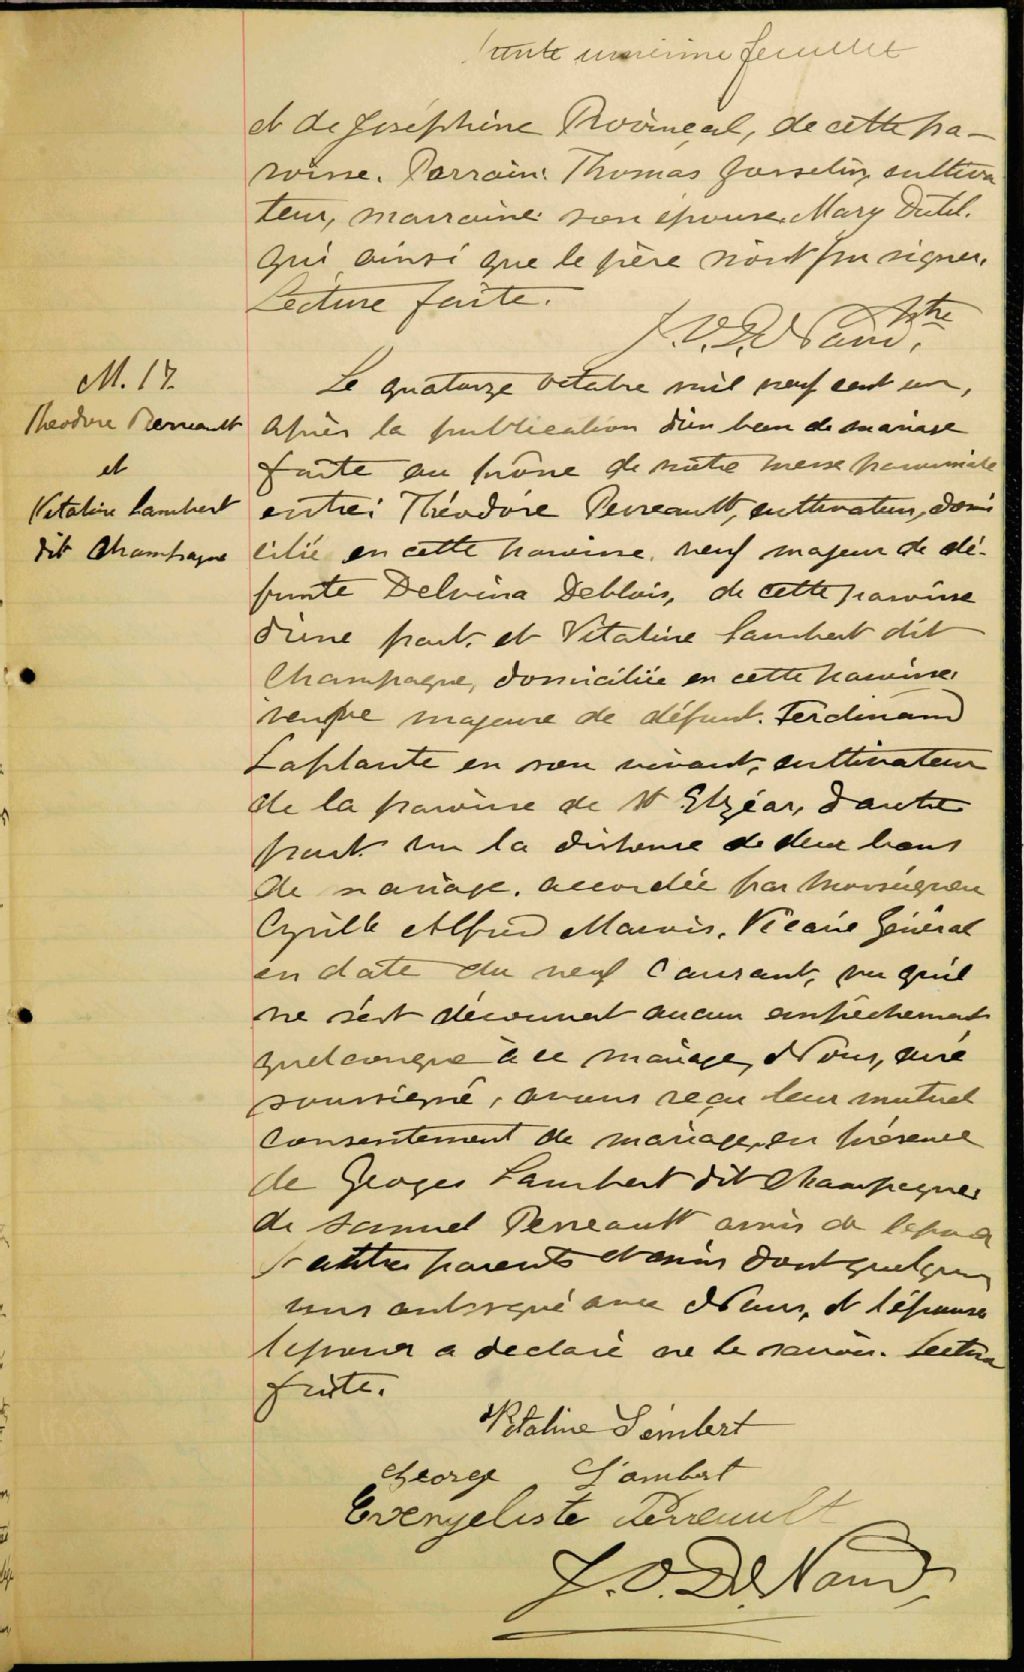 trente unième feuillet
et de Joséphine Provençal, de cette pa-
roisse. Parrain: Thomas Josselin, cultiva
teur, marraine: son épouse, Mary Dutil.
qui ainsi que le père n'ont pu signer.
Lecture faite.
J. V. D. Naud, Ptre
M. 17.
Théodore Perreault
et
Vitaline Lambert
dit Champagne
Le quatorze octobre mil neuf cent un,
après la publication d'un ban de mariage
faite au prône de notre messe paroissiale
entre: Théodore Perreault, cultivateur, domi
cilié en cette paroisse, veuf majeur de dé-
funte Delvina Deblois, de cette paroisse
d'une part. et Vitaline Lambert dit
Champagne, domiciliée en cette paroisse,
veuve majeure de défunt. Ferdinand
Laplante en son vivant, cultivateur
de la paroisse de St Elzéar, d'autre
part. vu la dispense de deux bans
de mariage, accordée par Monseigneur
Cyrille Alfred Marois, Vicaire Général
en date du neuf courant, vu qu'il
ne s'est découvert aucun empêchement
quelconque à ce mariage, Nous, curé
soussigné, avons reçu leur mutuel
consentement de mariage, en présence
de Georges Lambert dit Champagne,
de Samuel Perreault amis de l'époux
& autres parents et amis dont quelques
uns ont signé avec Nous, et l'épouse
l'époux a déclaré ne le savoir. Lecture
faite.
Vitaline Lembert
George Lambert
Evengeliste Perreault
J. V. D. Naud,